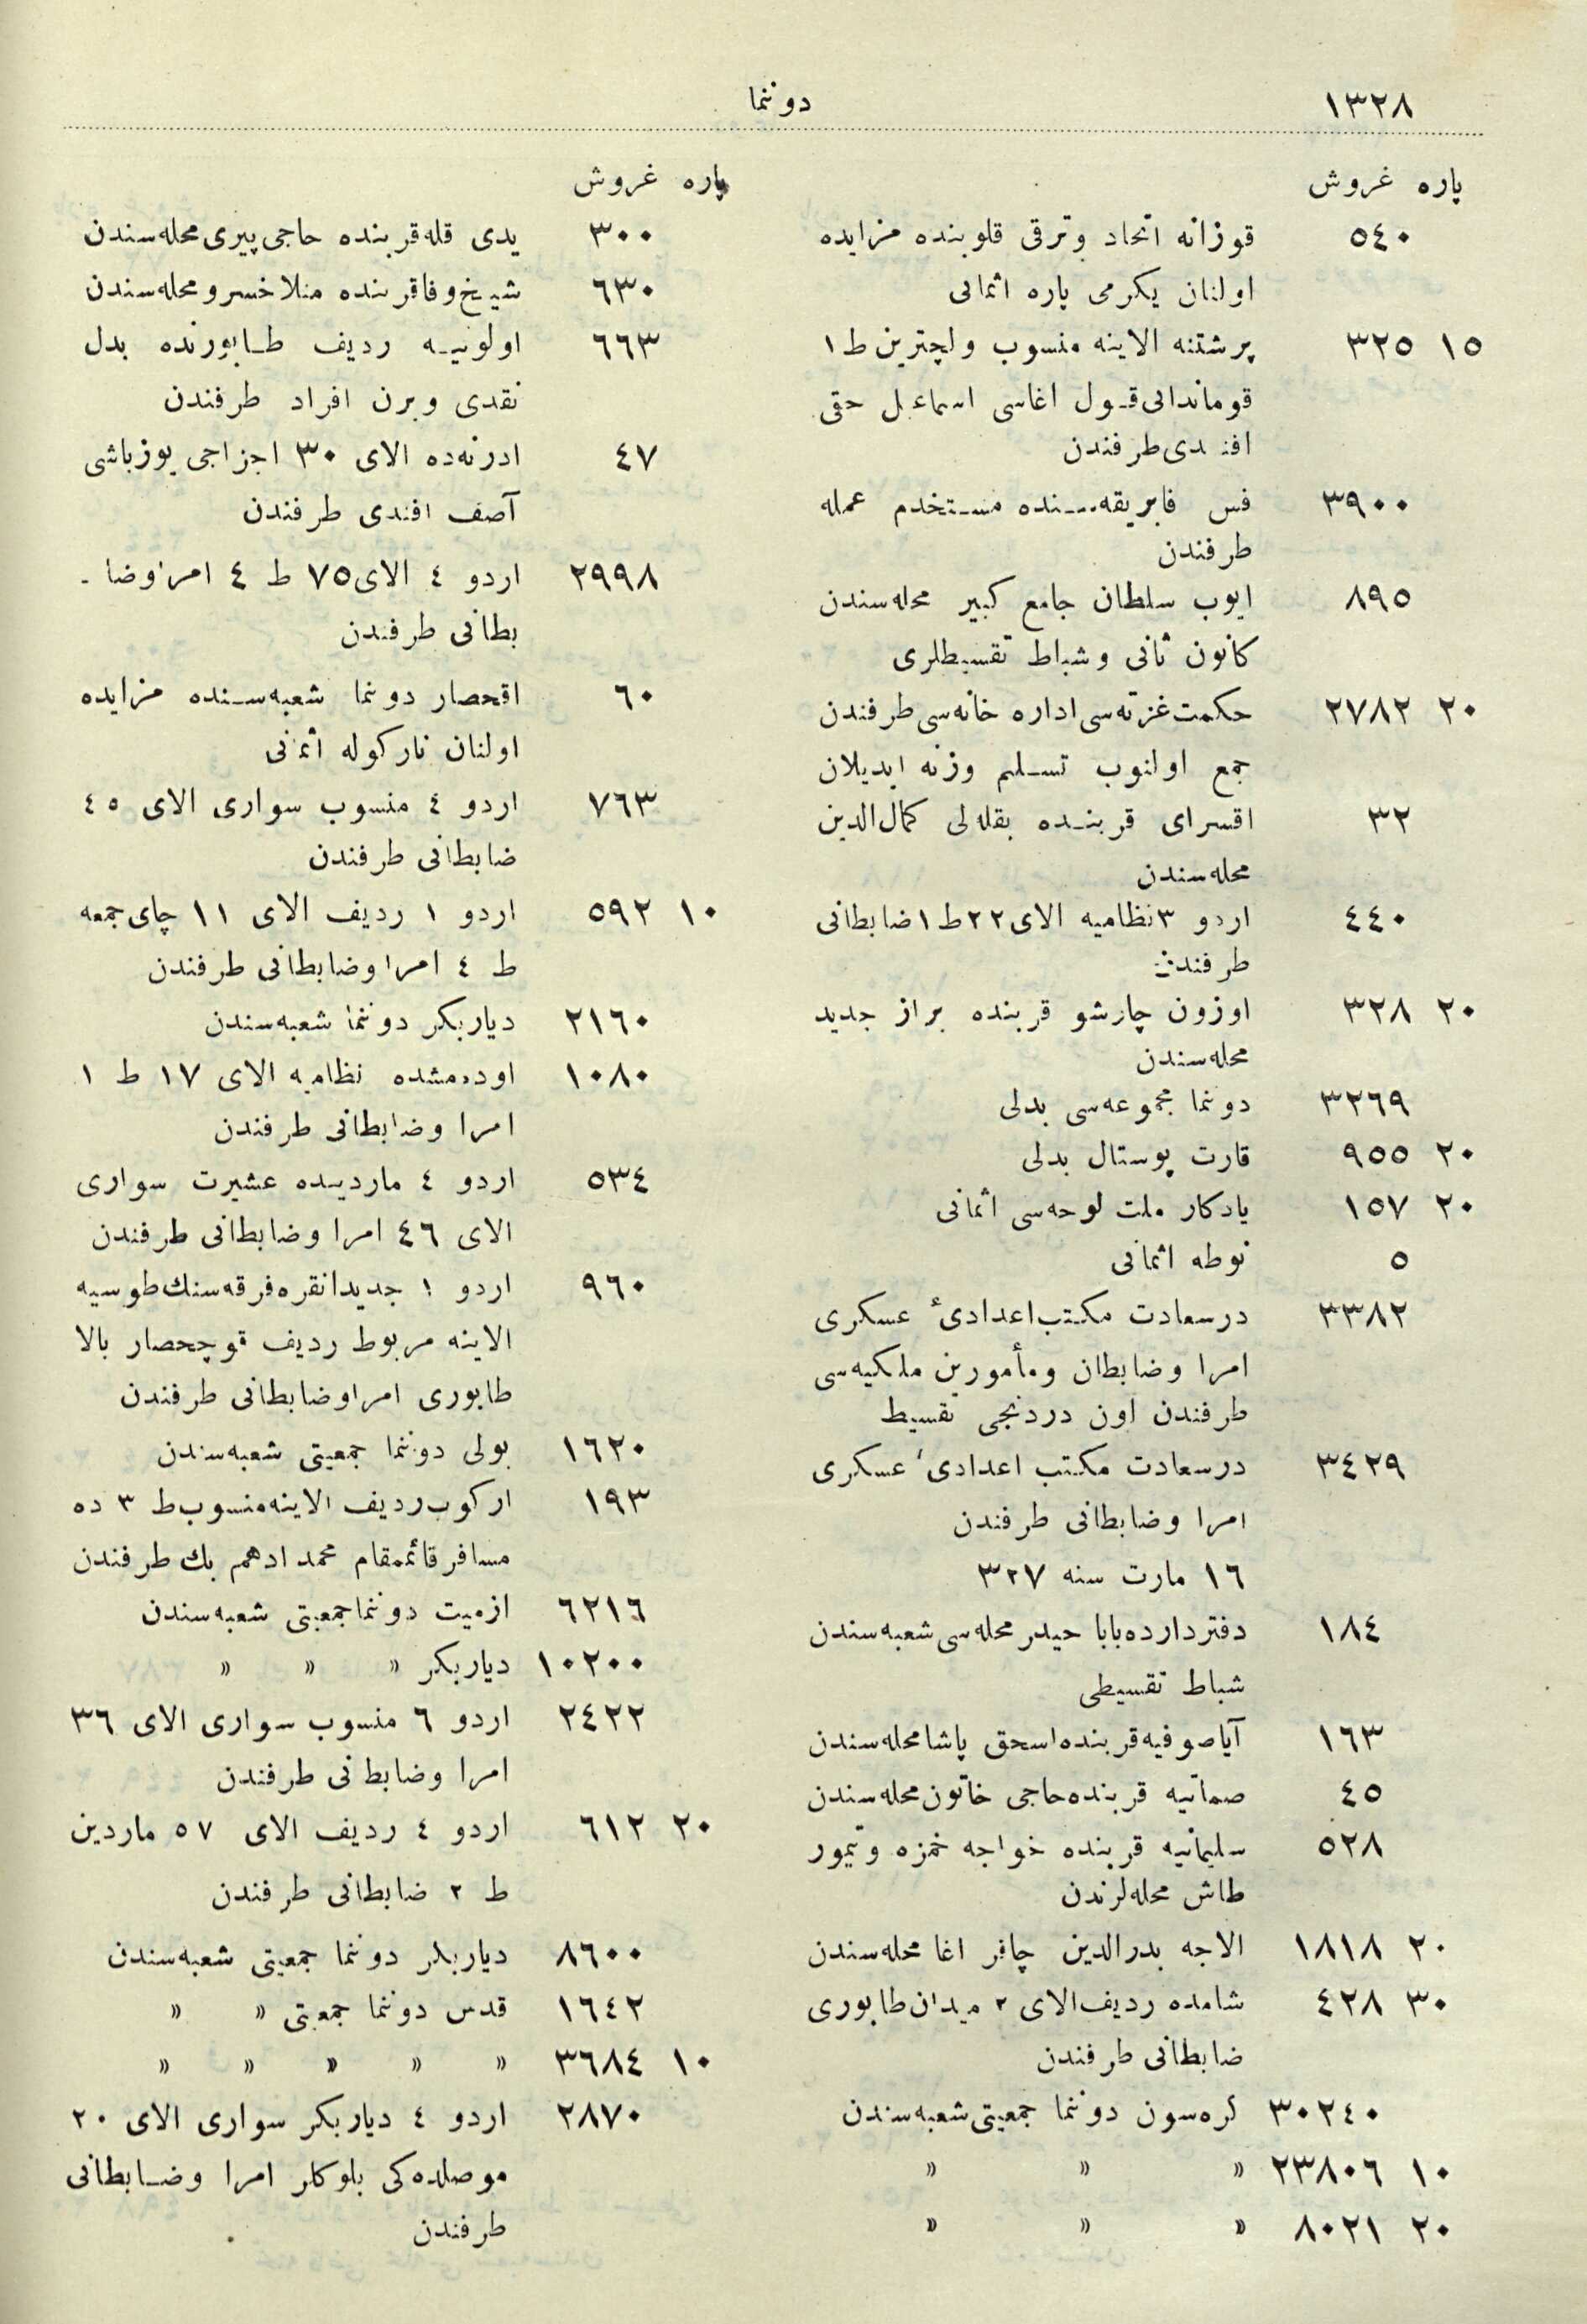 ١٣٢٨
دوننما
پاره غروش
٥٤٠ قوزانه اتحاد وترقی قلوبنده مزایده
اولنان یکرمی پاره اثمانی
١٥ ٣٢٥ پرشتنه الاینه منسوب ولچترین ط ١
قوماندانی قول اغاسی اسماعیل حقی
افندی طرفندن
٣٩٠٠ فس فابریقه‌سنده مستخدم عمله
طرفندن
٨٩٥ ایوب سلطان جامع کبیر محله‌سندن
کانون ثانی وشباط تقسیطلری
٢٠ ٢٧٨٢ حکمت غزته‌سی اداره خانه‌سی طرفندن
جمع اولنوب تسلیم وزنه ایدیلان
٣٢ اقسرای قربنده بقله‌لی کمال‌الدین
محله‌سندن
٤٤٠ اردو ٣ نظامیه الای ٢٢ ط ١ ضابطانی
طرفندن
٢٠ ٣٢٨ اوزون چارشو قربنده براز جدید
محله‌سندن
٣٢٦٩ دوننما مجموعه‌سی بدلی
٢٠ ٩٥٥ قارت پوستال بدلی
٢٠ ١٥٧ یادکار ملت لوحه‌سی اثمانی
٥ نوطه اثمانی
٣٣٨٢ درسعادت مکتب اعدادیٔ عسکری
امرا وضابطان ومأمورین ملکیه‌سی
طرفندن اون دردنجی تقسیط
٣٤٢٩ درسعادت مکتب اعدادیٔ عسکری
امرا وضابطانی طرفندن
١٦ مارت سنه ٣٢٧
١٨٤ دفترداردە بابا حیدر محله‌سی شعبه‌سندن
شباط تقسیطی
١٦٣ آیاصوفیه قربنده اسحق پاشا محله‌سندن
٤٥ صماتیه قربنده حاجی خاتون محله‌سندن
٥٢٨ سلیمانیه قربنده خواجه حمزه وتیمور
طاش محله‌لرندن
٢٠ ١٨١٨ الاجه بدرالدین چاقر اغا محله‌سندن
٣٠ ٤٢٨ شامده ردیف الای ٢ میدان طابوری
ضابطانی طرفندن
٣٠٢٤٠ کره‌سون دوننما جمعیتی شعبه‌سندن
١٠ ٢٣٨٠٦ » » »
٢٠ ٨٠٢١ » » »
پاره غروش
٣٠٠ یدی قله قربنده حاجی پیری محله‌سندن
٦٣٠ شیخ وفا قربنده منلا خسرو محله‌سندن
٦٦٣ اولونیه ردیف طابورنده بدل
نقدی ویرن افراد طرفندن
٤٧ ادرنه‌ده الای ٣٠ اجزاجی یوزباشی
آصف افندی طرفندن
٢٩٩٨ اردو ٤ الای ٧٥ ط ٤ امرا وضا-
بطانی طرفندن
٦٠ اقحصار دوننما شعبه‌سنده مزایده
اولنان نارکوله اثمانی
٧٦٣ اردو ٤ منسوب سواری الای ٤٥
ضابطانی طرفندن
١٠ ٥٩٢ اردو ١ ردیف الای ١١ چای جمعه
ط ٤ امرا وضابطانی طرفندن
٢١٦٠ دیاربکر دوننما شعبه‌سندن
١٠٨٠ اوده‌مشده نظامیه الای ١٧ ط ١
امرا وضابطانی طرفندن
٥٣٤ اردو ٤ ماردیده عشیرت سواری
الای ٤٦ امرا وضابطانی طرفندن
٩٦٠ اردو ١ جدیدا نقره فرقه‌سنك طوسیه
الاینه مربوط ردیف قوچحصار بالا
طابوری امرا وضابطانی طرفندن
١٦٢٠ بولی دوننما جمعیتی شعبه‌سندن
١٩٣ ارکوب ردیف الاینه منسوب ط ٣ ده
مسافر قائمقام محمد ادهم بك طرفندن
٦٢١٦ ازمیت دوننما جمعیتی شعبه‌سندن
١٠٢٠٠ دیاربکر » » »
٢٤٢٢ اردو ٦ منسوب سواری الای ٣٦
امرا وضابطانی طرفندن
٢٠ ٦١٢ اردو ٤ ردیف الای ٥٧ ماردین
ط ٢ ضابطانی طرفندن
٨٦٠٠ دیاربکر دوننما جمعیتی شعبه‌سندن
١٦٤٢ قدس دوننما جمعیتی » »
١٠ ٣٦٨٤ » » » » »
٢٨٧٠ اردو ٤ دیاربکر سواری الای ٢٠
موصلده‌کی بلوکلر امرا وضابطانی
طرفندن